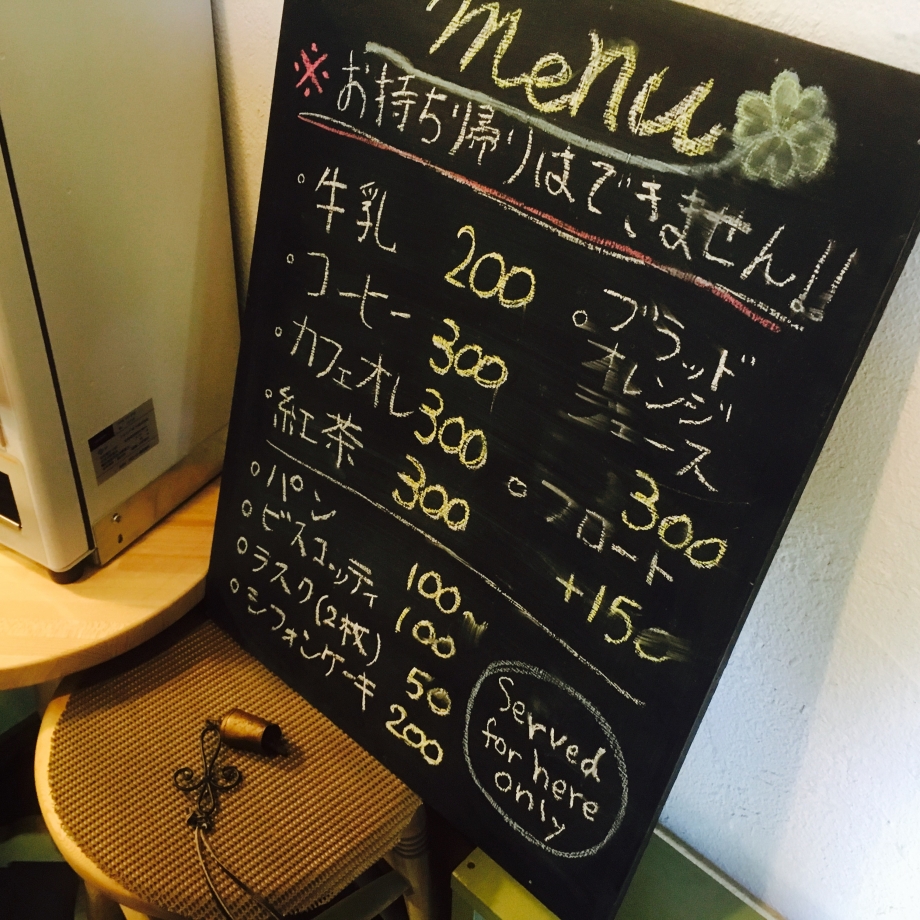 menu
※お持ち帰りはできません!!
○牛乳 200
○コーヒー 300
○カフェオレ 300
○紅茶 300
○ブラッド
オレンジ
ジュース
300
○フロート
+150
○パン 100~
○ビスコッティ 100
○ラスク(2枚) 50
○シフォンケーキ 200
Served
for here
only